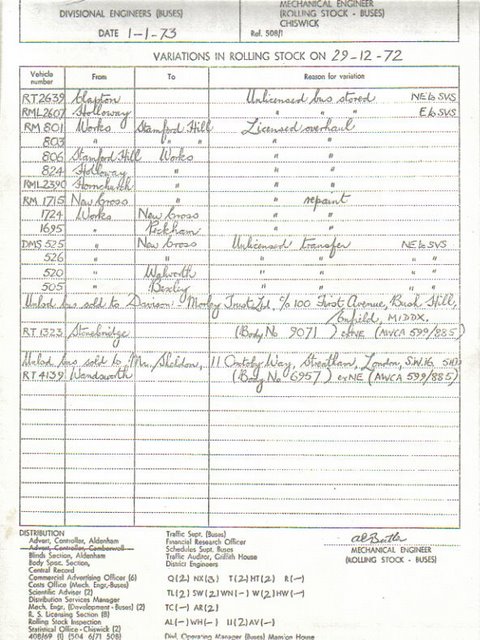 DIVISIONAL ENGINEERS (BUSES)
MECHANICAL ENGINEER
(ROLLING STOCK - BUSES)
CHISWICK
DATE 1-1-73
Ref. 508/1
VARIATIONS IN ROLLING STOCK ON 29-12-72
Vehicle number From To Reason for variation
RT2639 Clapton Unlicensed bus stored NE to SVS
RML2607 Holloway " " " E to SVS
RM 801 Works Stamford Hill Licensed overhaul
803 " " " " "
806 Stamford Hill Works " "
824 Holloway " " "
RML2390 Hornchurch " " "
RM 1715 New Cross " " repaint
1724 Works New Cross " "
1695 " Peckham " "
DMS 525 " New Cross Unlicensed transfer NE to SVS
526 " " " " " "
520 " Walworth " " " "
505 " Bexley " " " "
Unlsd bus sold to Davison - Morley Trust Ltd. c/o 100 First Avenue, Bush Hill,
Enfield, MIDDX.
RT1323 Stonebridge (Body No 9071 ) ex NE (AWCA 599/885)
Unlsd bus sold to Mr. Sheldon, 11 Way, Streatham, London, S.W.16
RT4139 Wandsworth (Body No 6957 ) ex NE (AWCA 599/885)
DISTRIBUTION
Advert, Controller, Aldenham
Advert, Controller, Camberwell
Blinds Section, Aldenham
Body Spec. Section,
Central Record
Commercial Advertising Officer (6)
Costs Office (Mech. Engr.-Buses)
Scientific Adviser (2)
Distribution Services Manager
Mech. Engr. (Development - Buses) (2)
R. S. Licensing Section (8)
Rolling Stock Inspection
Statistical Office - Chiswick (2)
408/69 (1) (504 6/71 508)
Traffic Supt. (Buses)
Financial Research Officer
Schedules Supt. Buses
Traffic Auditor, Griffith House
District Engineers
Q(2) NX(3) T(2) HT(2) R(-)
TL(2) SW(2) WN(-) W(2) HW(-)
TC(-) AR(2)
AL(-) WH(-) U(2) AV(-)
Divl. Operating Manager (Buses) Mansion House
MECHANICAL ENGINEER
(ROLLING STOCK - BUSES)